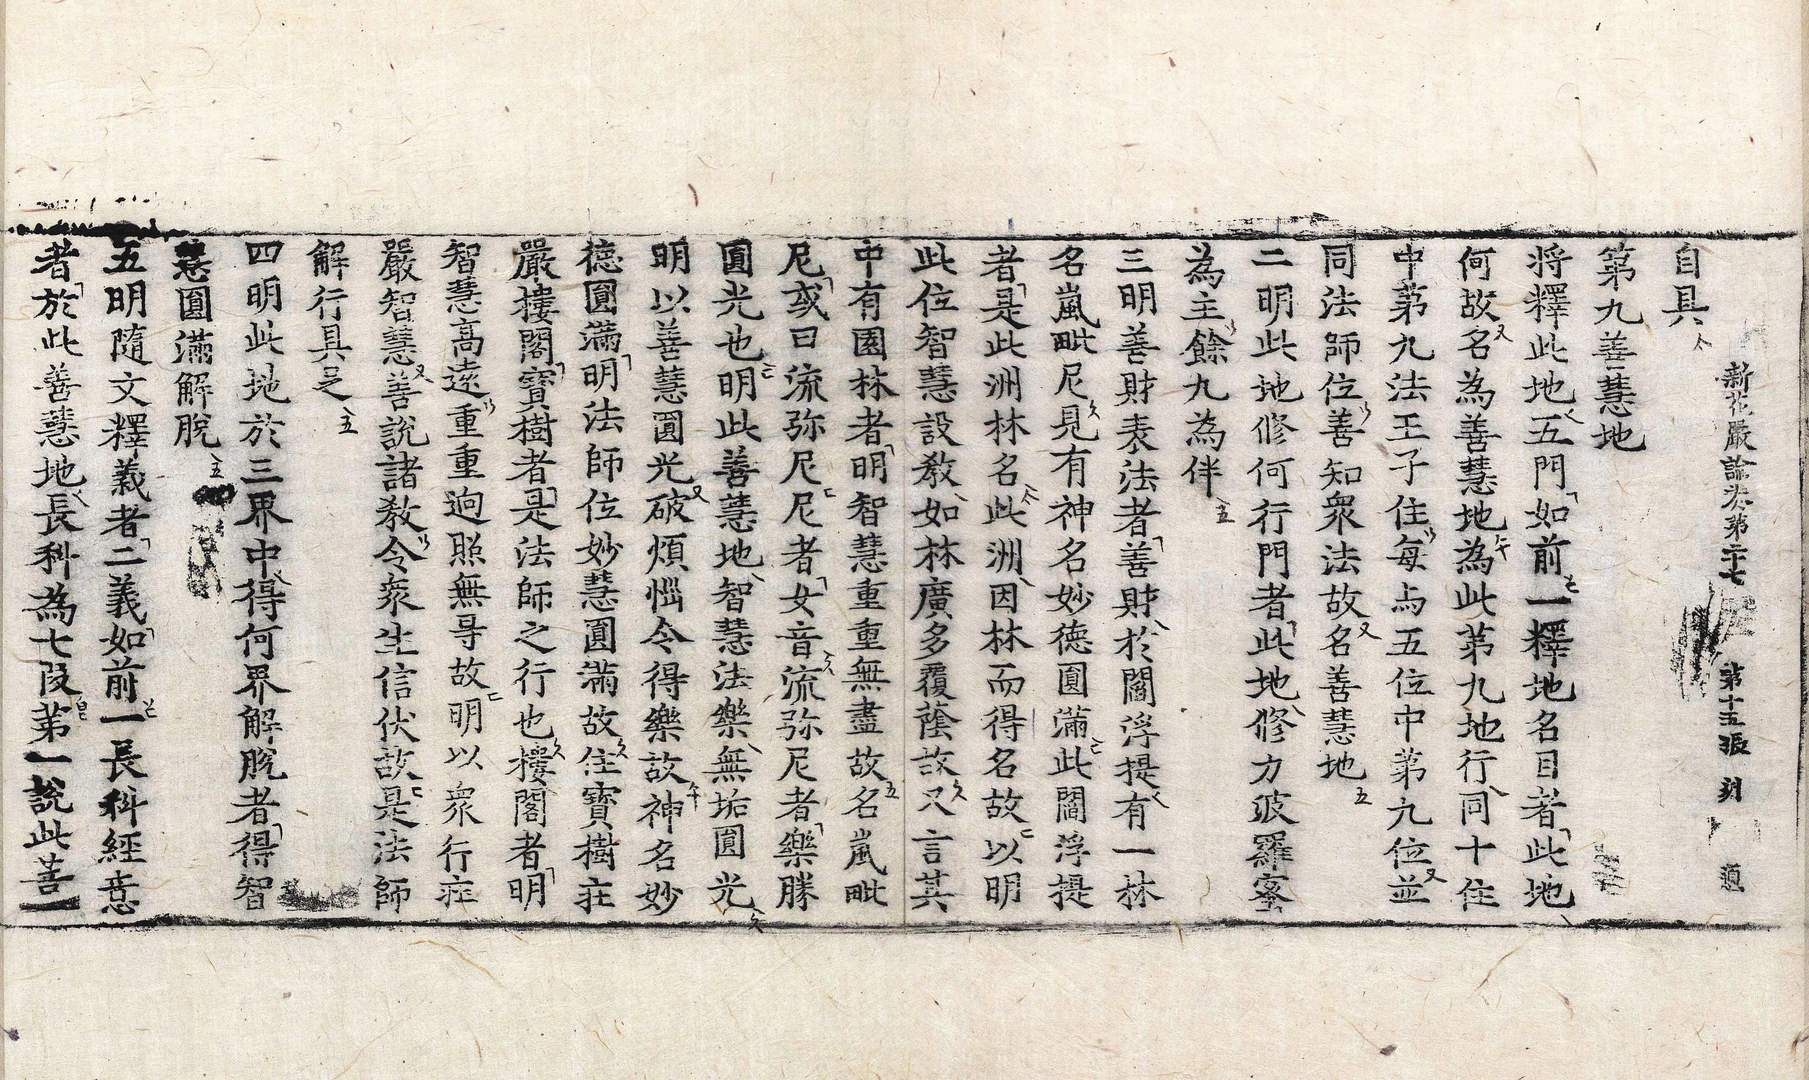 新花嚴論卷第二十七　第十五張　刻
自具
第九善慧地
將釋此地五門如前一釋地名目者此地
何故名為善慧地為此第九地行同十住
中第九法王子住每与五位中第九位並
同法師位善知衆法故名善慧地
二明此地修何行門者此地修力波羅蜜
為主餘九為伴
三明善財表法者善財於閻浮提有一林
名嵐毗尼見有神名妙德圓滿此閻浮提
者是此洲林名此洲因林而得名故以明
此位智慧設教如林廣多覆蔭故又言其
中有園林者明智慧重重無盡故名嵐毗
尼或曰流弥尼尼者女音流弥尼者樂勝
圓光也明此善慧地智慧法樂無垢圓光
明以善慧圓光破煩惱令得樂故神名妙
德圓滿明法師位妙慧圓滿故住寶樹莊
嚴樓閣寶樹者是法師之行也樓閣者明
智慧高遠重重迥照無㝵故明以衆行庄
嚴智慧善說諸教令衆生信伏故是法師
解行具足
四明此地於三界中得何界解脫者得智
慧圓滿解脫
五明隨文釋義者二義如前一長科經意
者於此善慧地長科為七段第一說此善